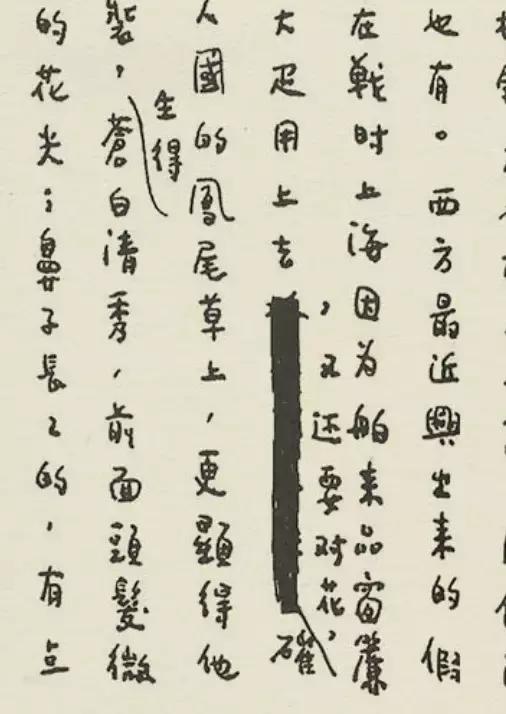 也有。西方最近興出来的假
在戰时上海因为舶来品窗簾
大疋用上去,又还要对花,確
人國的鳳尾草上,更顯得他
裝,生得蒼白清秀,前面頭髮微
的花尖;鼻子長々的,有点